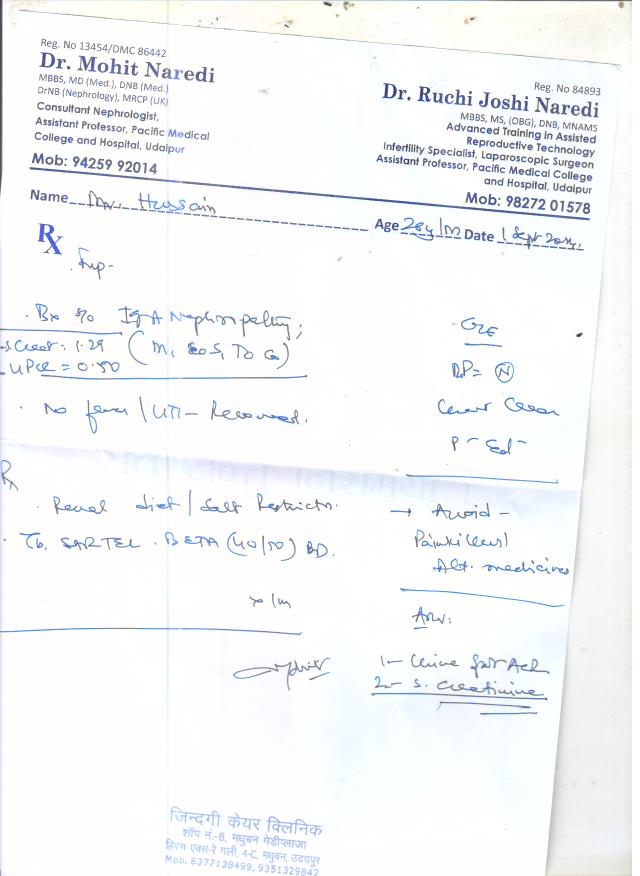 Reg. No 13454/DMC 86442
Dr. Mohit Naredi
MBBS, MD (Med.), DNB (Med.)
DrNB (Nephrology), MRCP (UK)
Consultant Nephrologist,
Assistant Professor, Pacific Medical
College and Hospital, Udaipur
Mob: 94259 92014
Reg. No 84893
Dr. Ruchi Joshi Naredi
MBBS, MS, (OBG), DNB, MNAMS
Advanced Training in Assisted
Reproductive Technology
Infertility Specialist, Laparoscopic Surgeon
Assistant Professor, Pacific Medical College
and Hospital, Udaipur
Mob: 98272 01578
Name Hussain
Age 28y/M Date 1 Sept
Rx
Imp-
Bx s/o IgA Nephropathy;
S. Creat: 1.29 (M, E0 S, T0 C0)
UPCR = 0.50
No fever / UTI - Recovered.
O/E
BP = N
Chest Clear
P - Ed -
Rx
Renal diet / Salt Restrictn.
Tb. SARTEL BETA (40/50) BD.
x 1m
→ Avoid -
Painkillers/
Alt. medicines
Adv:
1- Urine for ACR
2- S. Creatinine
जिन्दगी केयर क्लिनिक
शॉप नं.-8, मधुबन मेडीप्लाजा
हिरण एक्स-रे गली, 4-C, मधुबन, उदयपुर
Mob. 6377138499, 9351329842